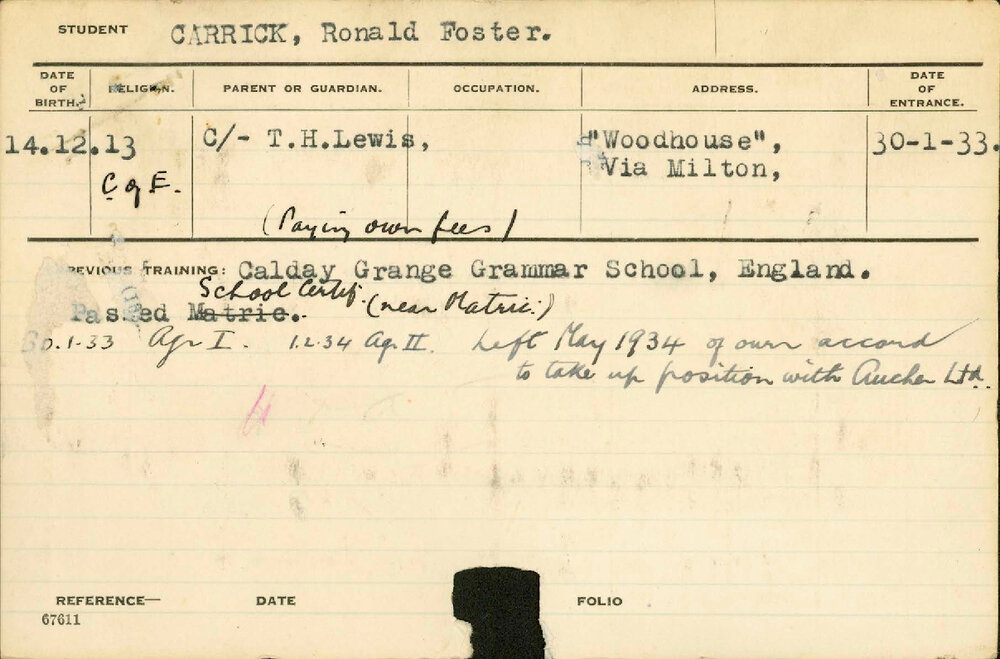 STUDENT CARRICK, Ronald Foster.
DATE OF BIRTH. RELIGION. PARENT OR GUARDIAN. OCCUPATION. ADDRESS. DATE OF ENTRANCE.
14.12.13 C/- T.H.Lewis, "Woodhouse", 30-1-33.
Via Milton,
C of E.
(Paying own fees)
PREVIOUS TRAINING: Calday Grange Grammar School, England.
School Certif. (near Matric.)
Passed Matric.
30.1-33 Agr I. 1.2.34 Agr II. Left May 1934 of own accord
to take up position with Ltd.
REFERENCE— DATE FOLIO
67611